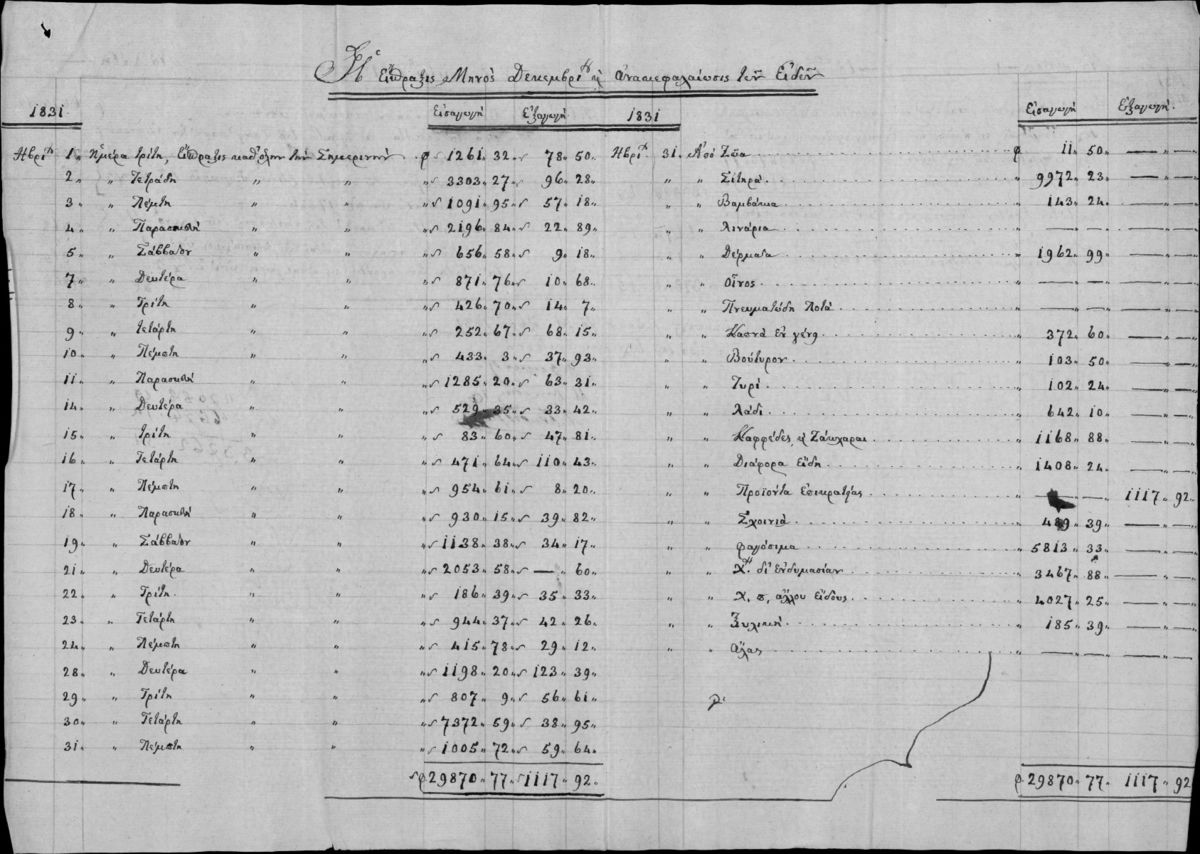 Ἡ Εἴσπραξις Μηνὸς Δεκεμβρί ϗ Ἀνακεφαλαίωσις τῶν Εἰδῶν
1831. Εἰσαγωγὴ Ἐξαγωγὴ 1831 Εἰσαγωγὴ Ἐξαγωγὴ.
1„ Ἡμέρα Τρίτη, Εἴσπραξις καθ' ὅλην τὴν Σημερινὴν φ 1261„ 32„ 78„ 50„ 31„ Ἀπὸ Ζῶα φ 11„ 50„ — „ — „
2„ „ Τετράδη „ „ „ 3303„ 27„ 96„ 28„ „ „ Σιτηρά 9972„ 23„ — „ — „
3„ „ Πέμπτη „ „ „ 1091„ 95„ 57„ 18„ „ „ Βαμβάκια 143„ 24„ — „ — „
4„ „ Παρασκευὴ „ „ „ 2196„ 84„ 22„ 89„ „ „ Λινάρια — „ — „ — „ — „
5„ „ Σάββατον „ „ „ 656„ 58„ 9„ 18„ „ „ Δέρματα 1962„ 99„ — „ — „
7„ „ Δευτέρα „ „ „ 871„ 76„ 10„ 68„ „ „ Οἶνος — „ — „ — „ — „
8„ „ Τρίτη „ „ „ 426„ 70„ 14„ 7„ „ „ Πνευματώδη Ποτὰ — „ — „ — „ — „
9„ „ Τετάρτη „ „ „ 252„ 67„ 68„ 15„ „ „ Καπνὰ ἐν γένει 372„ 60„ — „ — „
10„ „ Πέμπτη „ „ „ 433„ 3„ 37„ 93„ „ „ Βούτυρον 103„ 50„ — „ — „
11„ „ Παρασκευὴ „ „ „ 1285„ 20„ 63„ 31„ „ „ Τυρὶ 102„ 24„ — „ — „
14„ „ Δευτέρα „ „ „ 529„ 35„ 33„ 42„ „ „ Λάδι 642„ 10„ — „ — „
15„ „ Τρίτη „ „ „ 83„ 60„ 47„ 81„ „ „ Καφφέδες ϗ Ζάχαραι 1168„ 88„ — „ — „
16„ „ Τετάρτη „ „ „ 471„ 64„ 110„ 43„ „ „ Διάφορα Εἴδη 1408„ 24„ — „ — „
17„ „ Πέμπτη „ „ „ 954„ 61„ 8„ 20„ „ „ Προϊόντα Ἐπικρατείας — „ — „ 1117„ 92„
18„ „ Παρασκευὴ „ „ „ 930„ 15„ 39„ 82„ „ „ Σχοινιὰ 489„ 39„ — „ — „
19„ „ Σάββατον „ „ „ 1138„ 38„ 34„ 17„ „ „ φαγόσιμα 5813„ 33„ — „ — „
21„ „ Δευτέρα „ „ „ 2053„ 58„ — „ 60„ „ „ δι' ἐνδυμασίαν 3467„ 88„ — „ — „
22„ „ Τρίτη „ „ „ 186„ 39„ 35„ 33„ „ „ ἄλλου εἴδους 4027„ 25„ — „ — „
23„ „ Τετάρτη „ „ „ 944„ 37„ 42„ 26„ „ „ Ξυλικὴ 185„ 39„ — „ — „
24„ „ Πέμπτη „ „ „ 415„ 78„ 29„ 12„ „ „ Ἅλας — „ — „ — „ — „
28„ „ Δευτέρα „ „ „ 1198„ 20„ 123„ 39„
29„ „ Τρίτη „ „ „ 807„ 9„ 56„ 61„
30„ „ Τετάρτη „ „ „ 7372„ 59„ 38„ 95„
31„ „ Πέμπτη „ „ „ 1005„ 72„ 59„ 64„
φ 29870„ 77„ 1117„ 92„ φ 29870„ 77„ 1117„ 92